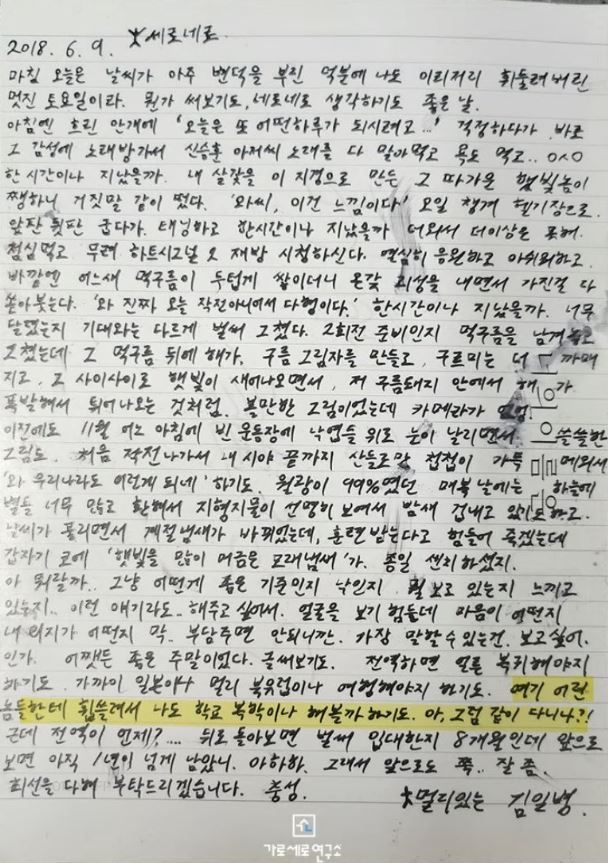 2018. 6. 9. 세로네로
마침 오늘은 날씨가 아주 변덕을 부린 덕분에 나도 이리저리 휘둘려버린
멋진 토요일이라. 뭔가 써보기도, 네로네로 생각하기도 좋은 날.
아침엔 흐린 안개에 '오늘은 또 어떤하루가 되시려고...' 걱정하다가 바로
그 감성에 노래방가서 신승훈 아저씨 노래를 다 말아먹고 욕도 먹고.. 0^0
한시간이나 지났을까. 내 살갗을 이 지경으로 만든 그 따가운 햇빛놈이
쨍하니 거짓말 같이 떴다. '와씨, 이건 느낌이다' 오일 챙겨 헬기장으로.
앞판 뒷판 굽다가. 태닝하고 한시간이나 지났을까 더워서 더이상은 못해.
점심먹고 무려 하트시그널 2 재방 시청하신다. 열심히 응원하고 아쉬워하고.
바깥엔 어느새 먹구름이 두텁게 쌓이더니 온갖 괴성을 내면서 가진걸 다
쏟아붓는다. '와 진짜 오늘 작전아니어서 다행이다.' 한시간이나 지났을까. 너무
달렸는지 기대와는 다르게 벌써 그쳤다. 2회전 준비인지 먹구름을 남겨놓고
그쳤는데 그 먹구름 뒤에 해가. 구름 그림자를 만들고, 구르미는 더 까매
지고, 그 사이사이로 햇빛이 새어나오면서, 저 구름돼지 안에서 해가
폭발해서 튀어나오는 것처럼. 볼만한 그림이었는데 카메라가
이전에도 11월 어느 아침에 빈 운동장에 낙엽들 위로 눈이 날리면서 쓸쓸한
그림도. 처음 작전나가서 내 시야 끝까지 산들로만 첩첩이 가득 메워서
'와 우리나라도 이렇게 되네' 하기도. 월광이 99%였던 매복 날에는 하늘에
별들 너무 많고 환해서 지형지물이 선명히 보여서 밤새 겁내고 있기도하고.
날씨가 풀리면서 계절냄새가 바뀌었는데, 훈련받는다고 힘들어 죽겠는데
갑자기 코에 '햇빛을 많이 머금은 모래냄새'가. 종일 센치하셨지.
아 뭐랄까.. 그냥 어떻게 좋은 기분인지 낙인지 뭘 보고 있는지 느끼고
있는지.. 이런 얘기라도.. 해주고 싶어서. 얼굴을 보기 힘든데 마음이 어떤지
내 의지가 어떤지 막.. 부담주면 안되니깐. 가장 말할수 있는건. 보고싶어.
인가. 어쨌든 좋은 주말이었다. 글써보기도. 전역하면 얼른 복귀해야지
하기도. 가까이 일본이나 멀리 북유럽이나 여행해야지 하기도. 여기 어린
놈들한테 휩쓸려서 나도 학교 복학이나 해볼까하기도. 아, 그럼 같이 다니나?!
근데 전역이 언제?.... 뒤로 돌아보면 벌써 입대한지 8개월인데 앞으로
보면 아직 1년이 넘게 남았니. 아하하. 그래서 앞으로도 쭉.. 잘 좀
최선을 다해 부탁드리겠습니다. 충성.
멀리있는 김일병
가로세로연구소